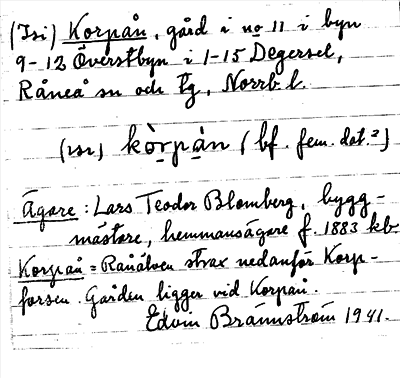 (Isi) Korpån, gård i no 11 i byn
9-12 Överstbyn i 1-15 Degersel,
Råneå sn och tg, Norrb. l.
(ısı) kòrpån (bf. fem. dat.?)
Ägare: Lars Teodor Blomberg, bygg-
mästare, hemmansägare f. 1883 kb
Korpån = Råneälven strax nedanför Korp-
forsen. Gården ligger vid Korpån.
Edvin Brännström 1941.